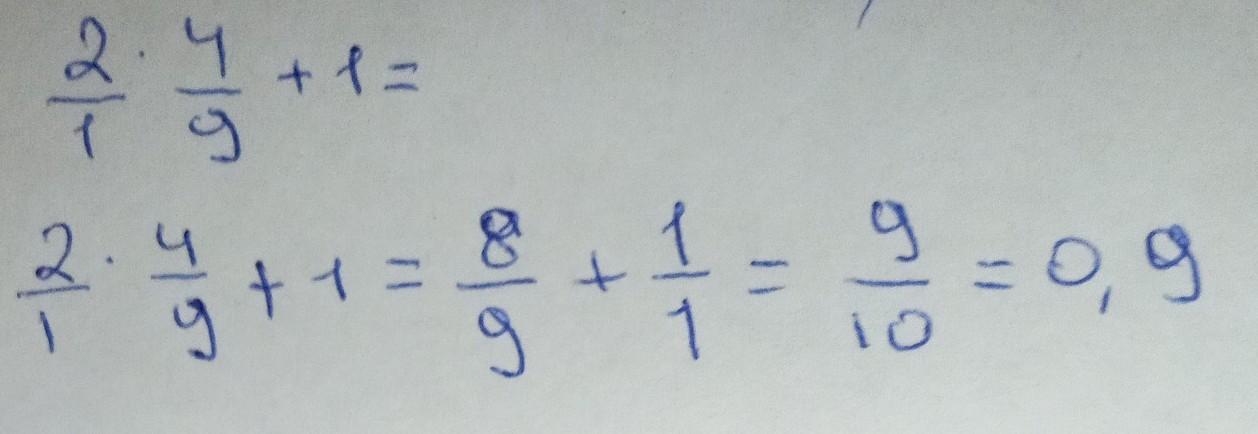 2/1 · 4/9 + 1 =
2/1 · 4/9 + 1 = 8/9 + 1/1 = 9/10 = 0,9